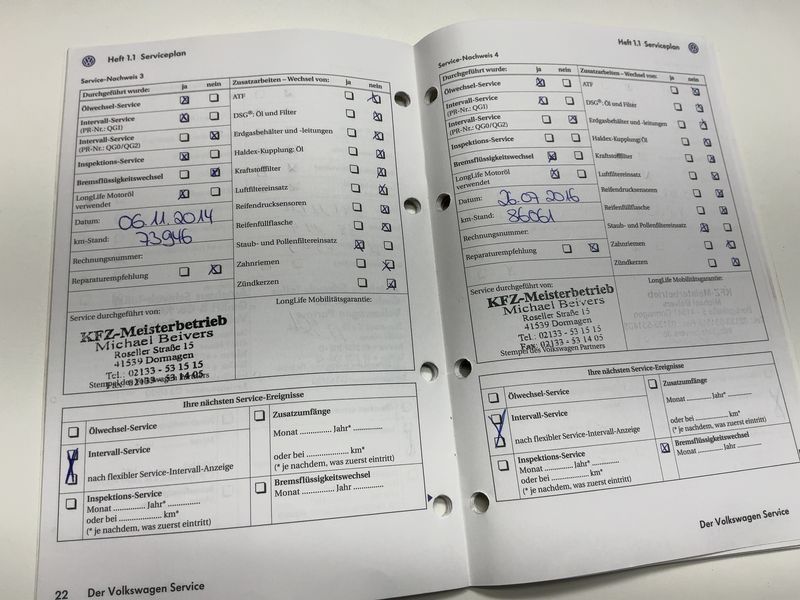 Heft 1.1 Serviceplan
Service-Nachweis 3
Durchgeführt wurde: ja nein
Ölwechsel-Service
Intervall-Service
(PR-Nr.: QG1)
Intervall-Service
(PR-Nr.: QG0/QG2)
Inspektions-Service
Bremsflüssigkeitswechsel
LongLife Motoröl
verwendet
Datum: 06.11.2014
km-Stand: 73946
Rechnungsnummer:
Reparaturempfehlung
Zusatzarbeiten – Wechsel von: ja nein
ATF
DSG®: Öl und Filter
Erdgasbehälter und -leitungen
Haldex-Kupplung: Öl
Kraftstofffilter
Luftfiltereinsatz
Reifendrucksensoren
Reifenfüllflasche
Staub- und Pollenfiltereinsatz
Zahnriemen
Zündkerzen
Service durchgeführt von:
LongLife Mobilitätsgarantie:
KFZ-Meisterbetrieb
Michael Beivers
Roseller Straße 15
41539 Dormagen
Tel.: 02133 - 53 15 15
Fax: 02133 - 53 14 05
Stempel des Volkswagen Partners
Ihre nächsten Service-Ereignisse
Ölwechsel-Service
Intervall-Service
nach flexibler Service-Intervall-Anzeige
Inspektions-Service
Monat ............. Jahr* .............
oder bei ............. km*
(* je nachdem, was zuerst eintritt)
Zusatzumfänge
Monat ............. Jahr* .............
oder bei ............. km*
(* je nachdem, was zuerst eintritt)
Bremsflüssigkeitswechsel
Monat ............. Jahr .............
22 Der Volkswagen Service
Heft 1.1 Serviceplan
Service-Nachweis 4
Durchgeführt wurde: ja nein
Ölwechsel-Service
Intervall-Service
(PR-Nr.: QG1)
Intervall-Service
(PR-Nr.: QG0/QG2)
Inspektions-Service
Bremsflüssigkeitswechsel
LongLife Motoröl
verwendet
Datum: 26.07 2016
km-Stand: 86061
Rechnungsnummer:
Reparaturempfehlung
Zusatzarbeiten – Wechsel von: ja nein
ATF
DSG®: Öl und Filter
Erdgasbehälter und -leitungen
Haldex-Kupplung: Öl
Kraftstofffilter
Luftfiltereinsatz
Reifendrucksensoren
Reifenfüllflasche
Staub- und Pollenfiltereinsatz
Zahnriemen
Zündkerzen
Service durchgeführt von:
LongLife Mobilitätsgarantie:
KFZ-Meisterbetrieb
Michael Beivers
Roseller Straße 15
41539 Dormagen
Tel.: 02133 - 53 15 15
Fax: 02133 - 53 14 05
Stempel des Volkswagen Partners
Ihre nächsten Service-Ereignisse
Ölwechsel-Service
Intervall-Service
nach flexibler Service-Intervall-Anzeige
Inspektions-Service
Monat ............. Jahr* .............
oder bei ............. km*
(* je nachdem, was zuerst eintritt)
Zusatzumfänge
Monat ............. Jahr* .............
oder bei ............. km*
(* je nachdem, was zuerst eintritt)
Bremsflüssigkeitswechsel
Monat ............. Jahr .............
Der Volkswagen Service